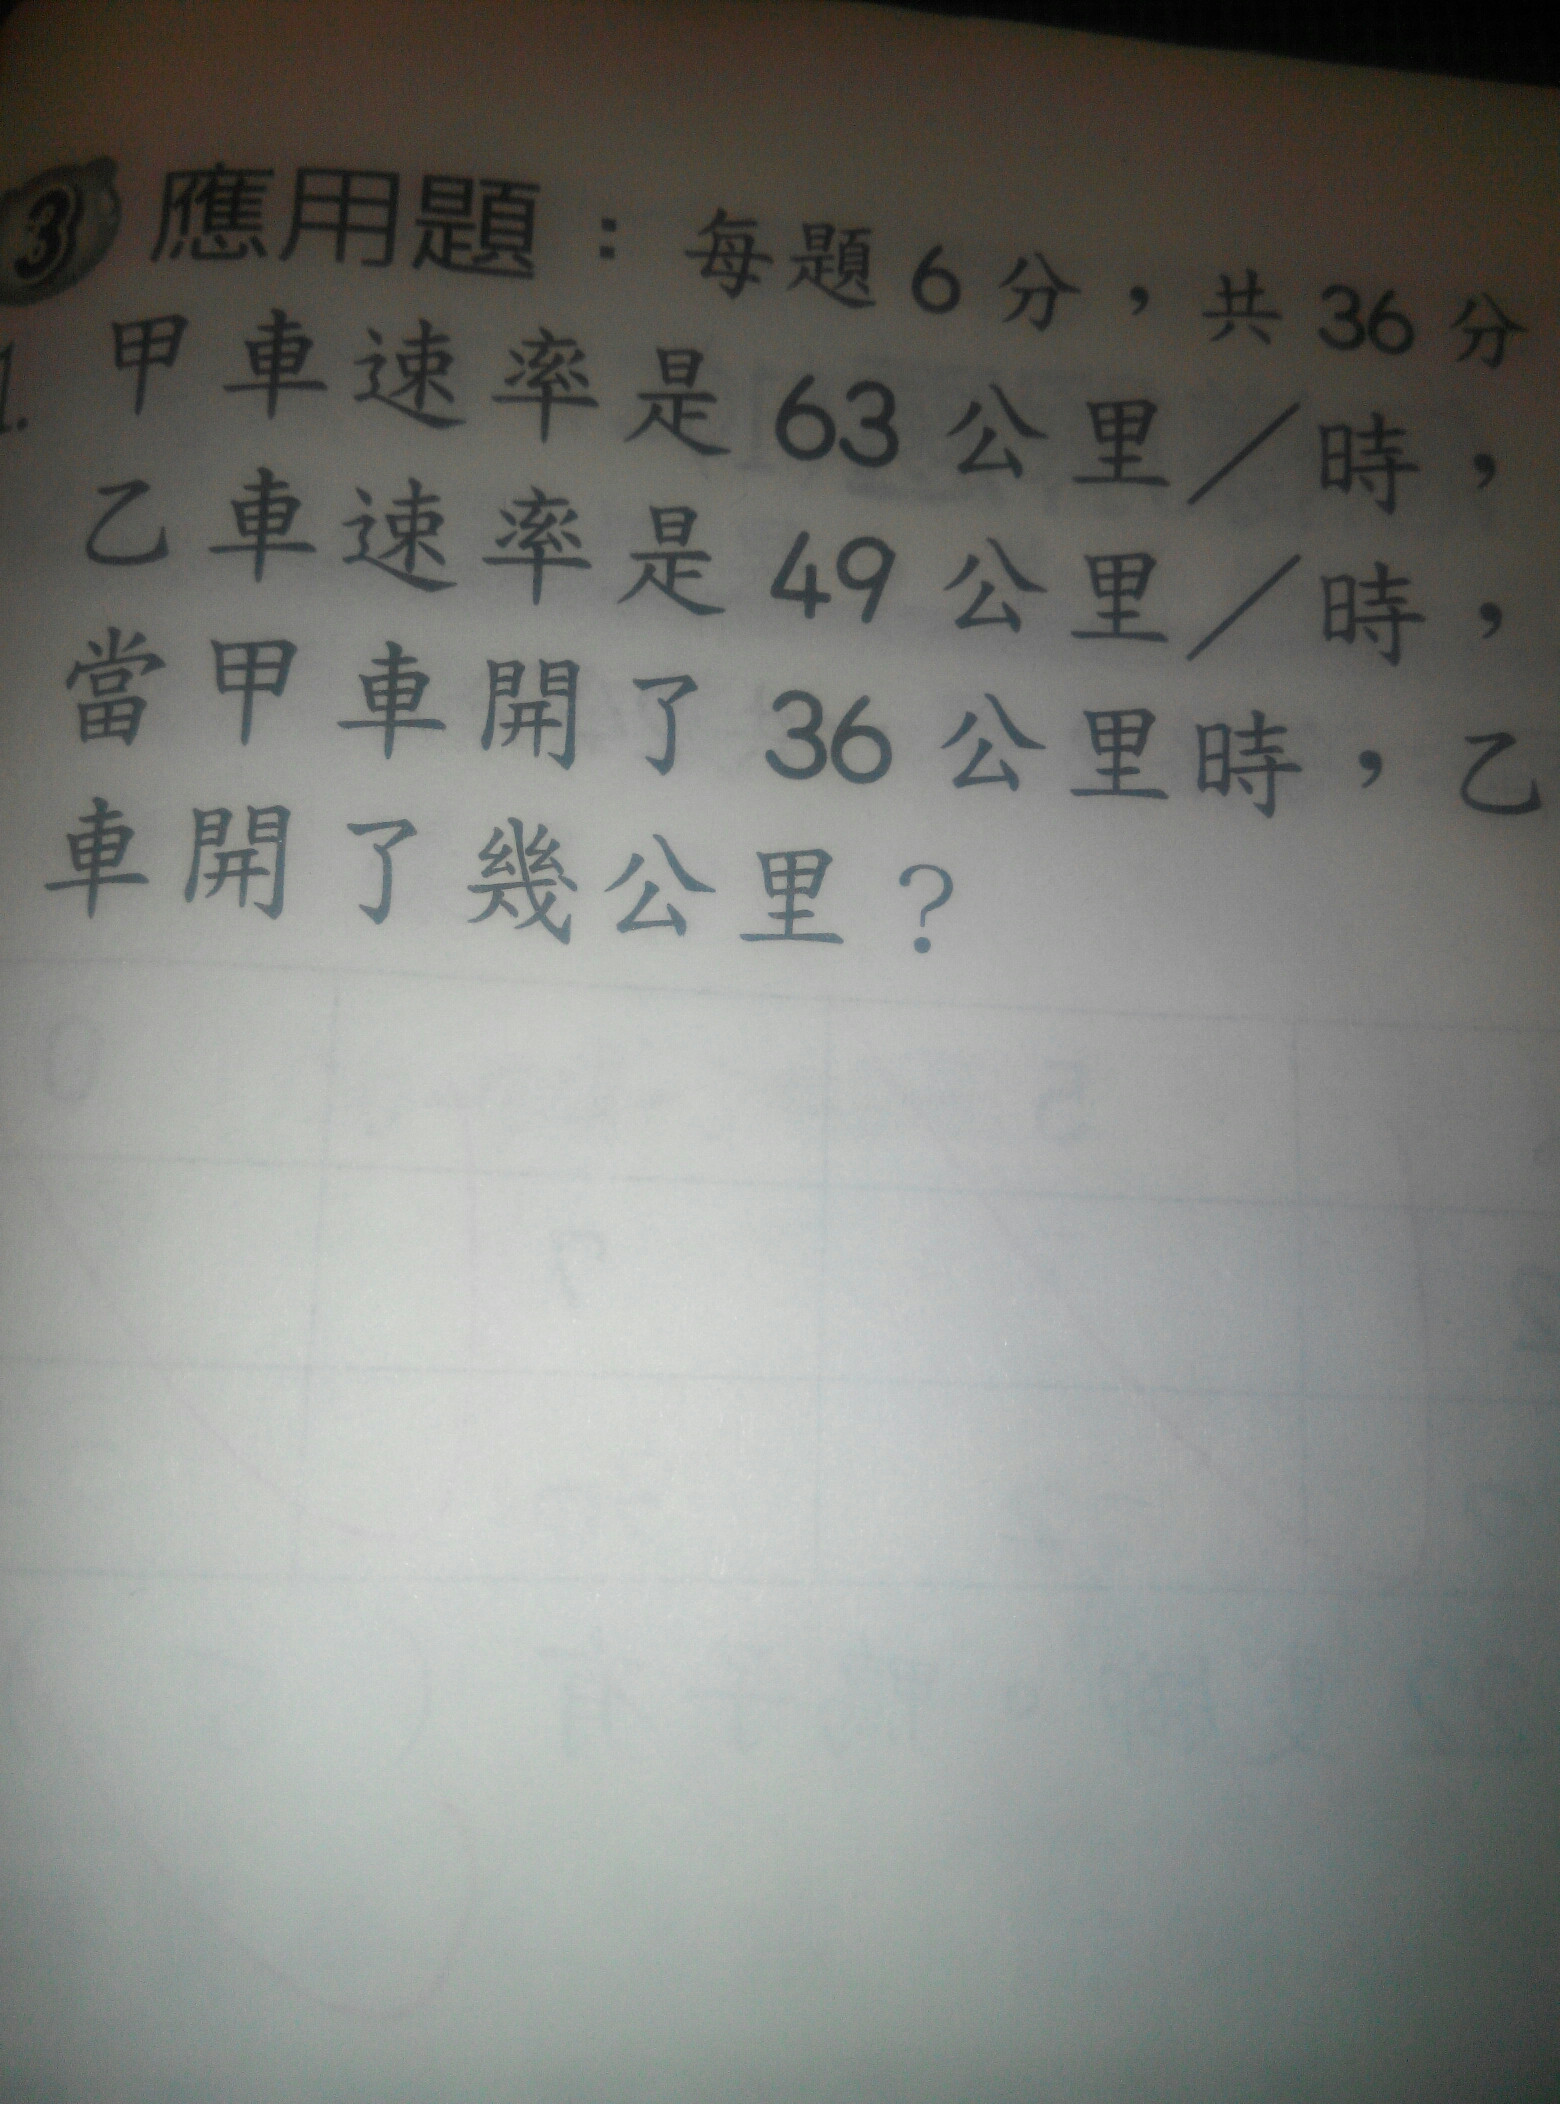 3 應用題：每題6分，共36分
1. 甲車速率是63公里／時，
乙車速率是49公里／時，
當甲車開了36公里時，乙
車開了幾公里？